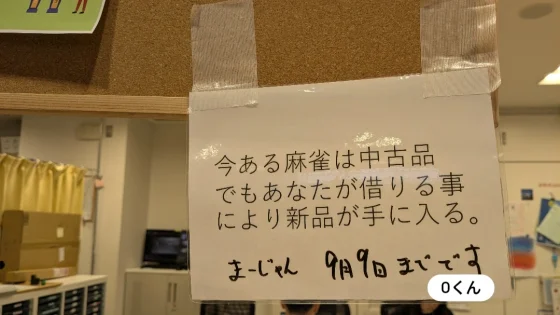 今ある麻雀は中古品
でもあなたが借りる事
により新品が手に入る。
まーじゃん 9月9日までです
0くん